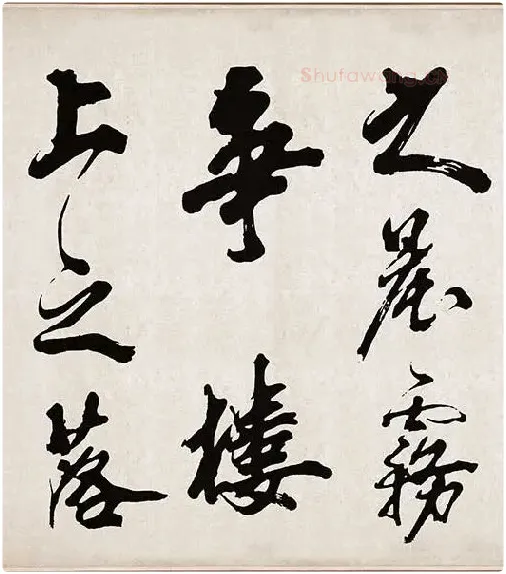 Shufawang.cn
之晨霧
華樓
上之落